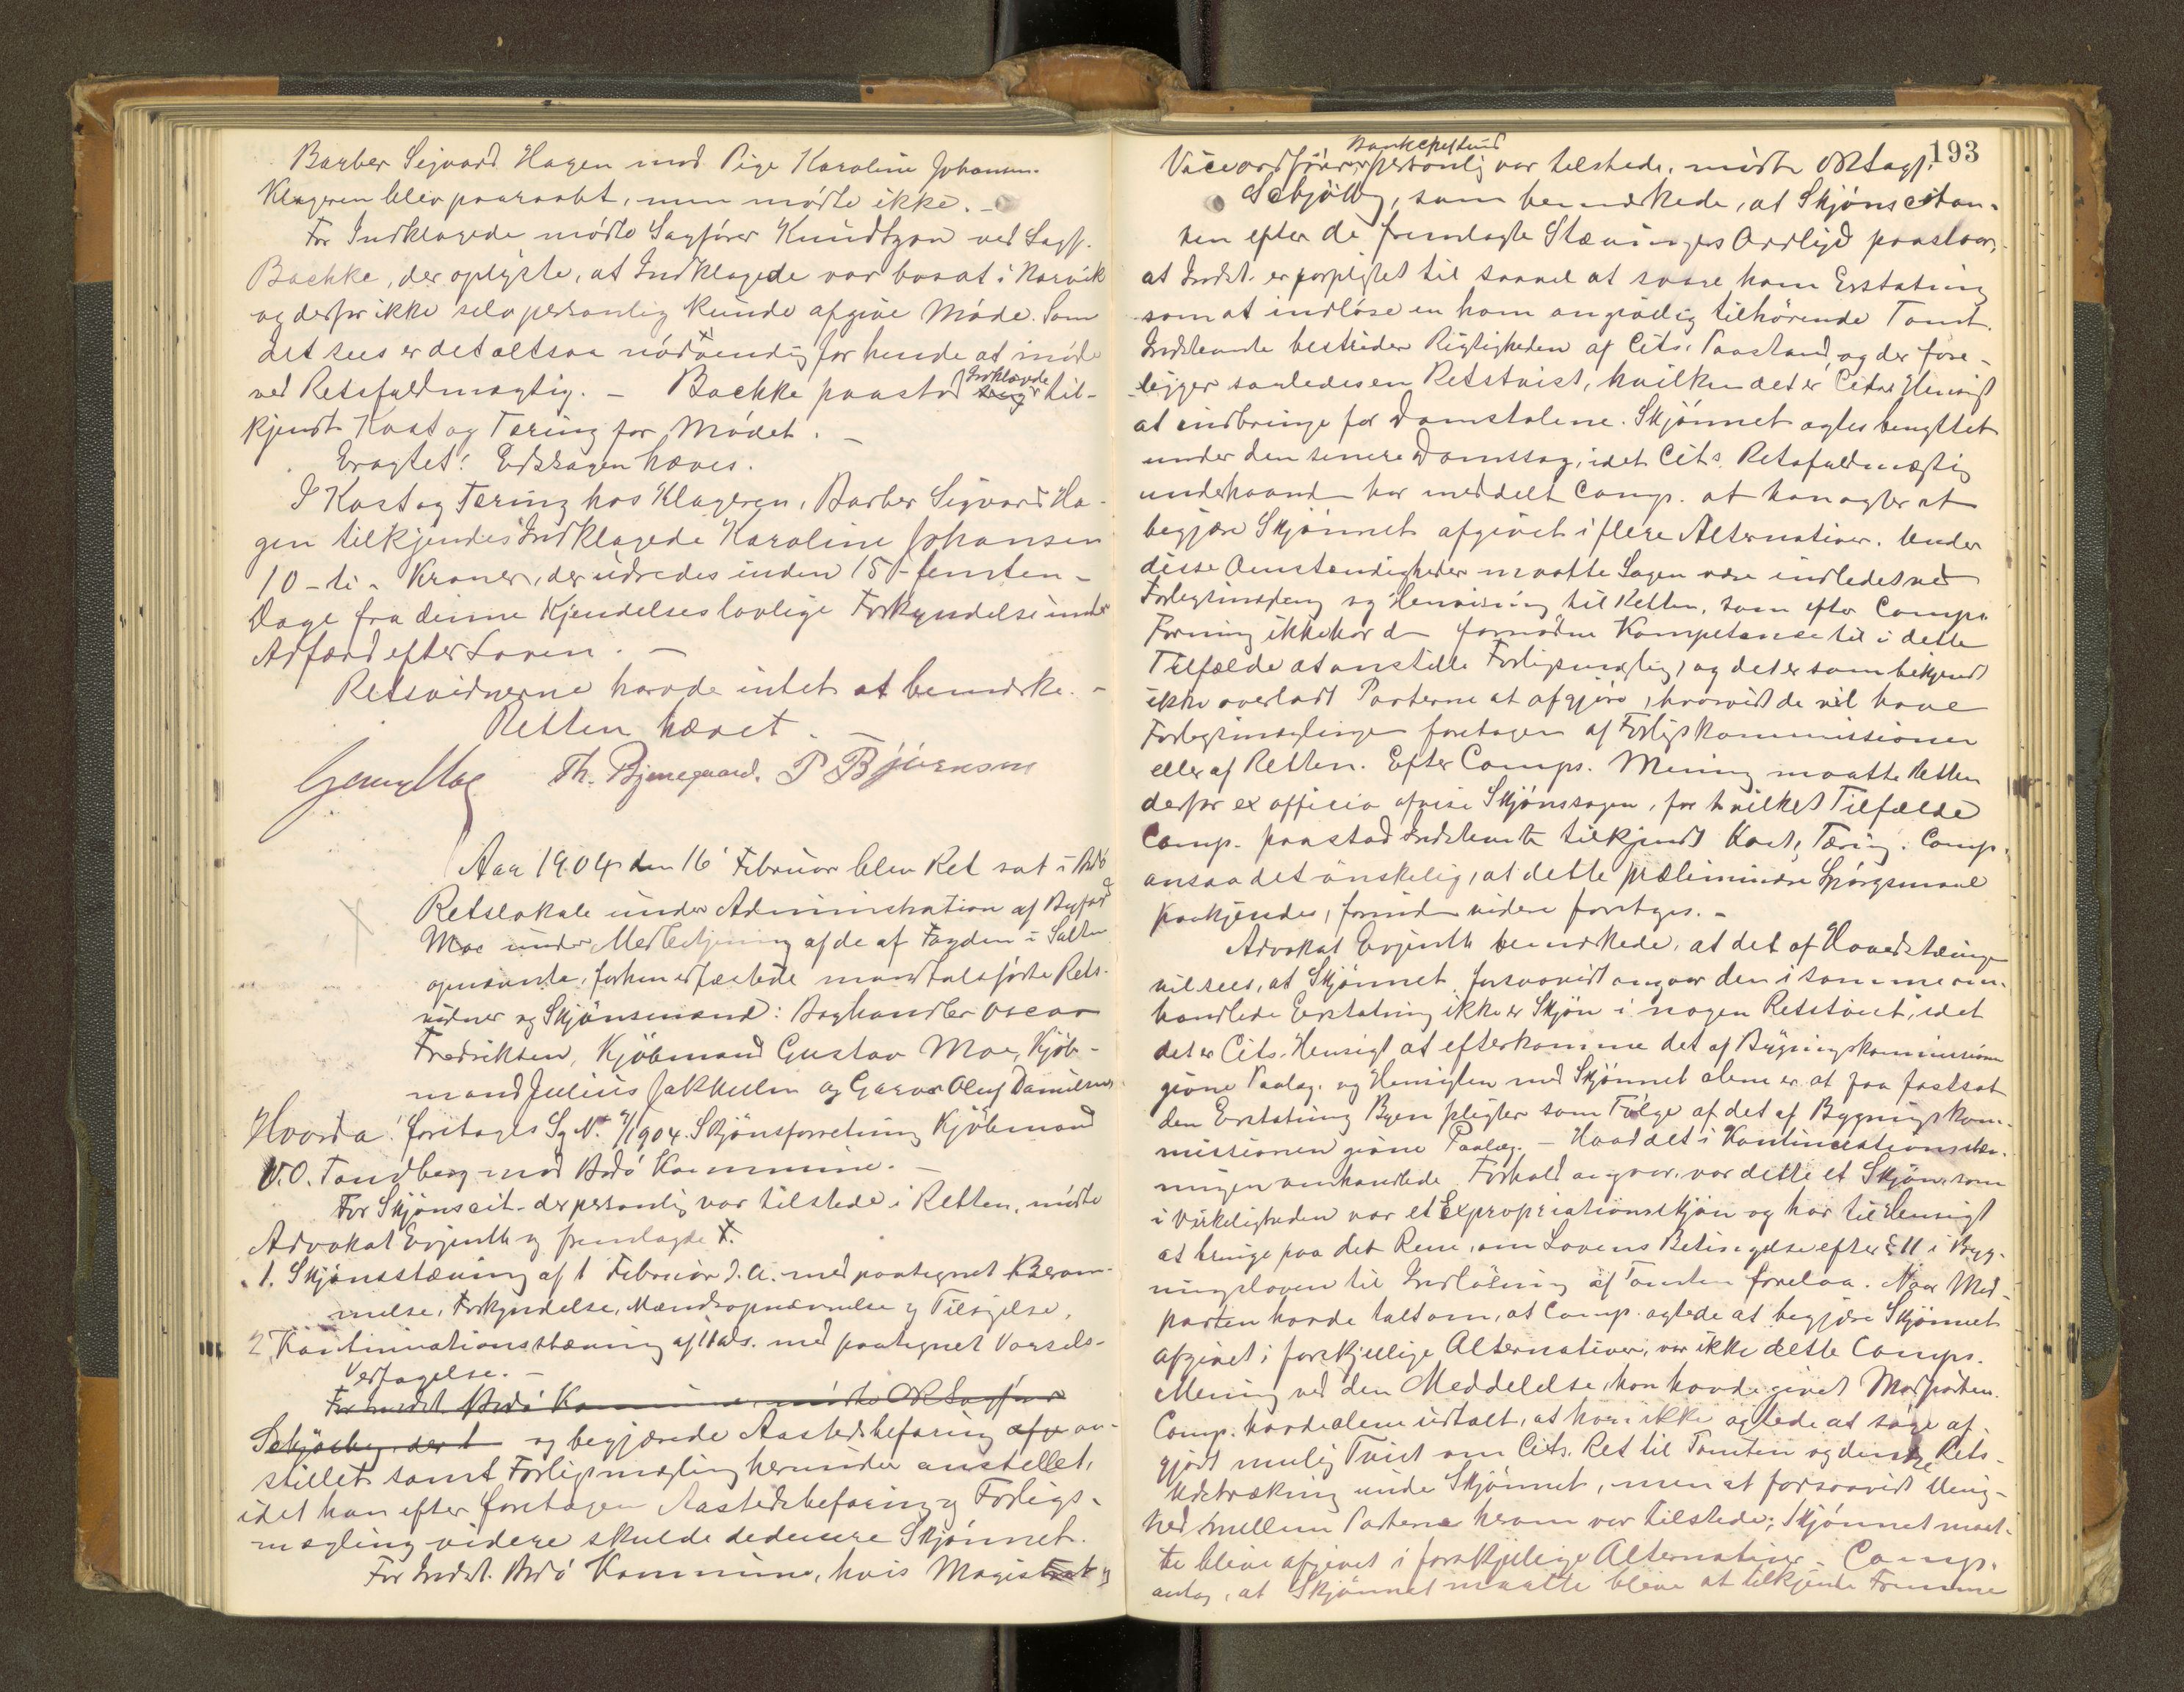 Barber Sigvard Hagen mod Pige Karoline Johansen.
Klageren blev paaraabt, men mødte ikke. –
For Indklagede mødte Sagfører Knudtzon ved Sagf.
Bachke, der oplyste, at Indklagede var bosat i Narvik
og derfor ikke selv personlig kunde afgive Møde. Som
det sees er det altsaa nødvendig for hende at møde
ved Retsfuldmægtig. – Bachke paastod Indklagede til-
kjendt Kost og Tæring for Mødet. –
Eragtet: Edssagen hæves.
I Kost og Tæring hos Klageren, Barber Sigvard Ha-
gen tilkjendes Indklagede Karoline Johansen
10 – ti – Kroner, der udredes inden 15 – femten –
Dage fra denne Kjendelses lovlige Forkyndelse under
Adfærd efter Loven. –
Retsvidnerne havde intet at bemærke. –
Retten hævet. –
Th. Bjernegaard. P Bjørnson
Aar 1904 den 16 Februar blev Ret sat i Bodø
Retslokale under Administration af Byfoged
Moe under Medbetjening af de af Fogden i Salten
opnævnte, forhen edfæstede mandtalsførte Rets-
vidner og Skjønsmænd: Boghandler Oscar
Fredriksen, Kjøbmand Gustav Moe, Kjøb-
mand Julius Jakhelln og Garver Oluf Danielsen,
Hvorda: foretoges Sag No 7/1904. Skjønsforretning Kjøbmand
V.O. Tandberg mod Bodø Kommune. –
For Skjønscit. der personlig var tilstede i Retten, mødte
Advokat Evjenth og fremlagde
1. Skjønsstævning af 1 Februar d.A. med paategnet Beram-
melse, Forkyndelse, Mændsopnævnelse og Tilsigelse,
2 Kontinuationsstævning af 11 ds. med paategnet Varsels-
Vedtagelse. –
For Indst. Bodø Kommune, mødte OR Sagfører
Schjølberg, der og begjærede Aastedsbefaring an-
stillet samt Forligsmægling herunder anstillet,
idet han efter foretagen Aastedsbefaring og Forligs-
mægling videre skulde deducere Skjønnet.
For Indst. Bodø Kommune, hvis Magistrat og
193
Viceordfører Bankchef personlig var tilstede, mødte ORSagf.
Schjølberg, som bemærkede, at Skjønscitan-
ten efter de fremlagte Stævningers Ordlyd paastaar,
at Indst. er forpligtet til saavel at svare ham Erstatning
som at indløse en ham angivelig tilhørende Tomt.
Indstevnte bestrider Rigtigheden af Cits. Paastand, og der fore-
ligger saaledes en Retstvist, hvilken det er Citas Hensigt
at indbringe for Domstolene. Skjønnet agtes benyttet
under den senere Domssag, idet Cits. Retsfuldmægtig
underhaanden har meddelt Comp. at han agter at
begjære Skjønnet afgivet i flere Alternativer. Under
disse Omstændigheder maatte Sagen være indledet ved
Forligsmægling og Henvisning til Retten, som efter Comps.
Formening ikke har den fornødne Kompetance til i dette
Tilfælde at anstille Forligsmægling, og det er som bekjendt
ikke overladt Parterne at afgjøre, hvorvidt de vil have
Forligsmæglingen foretagen af Forligskommissionen
eller af Retten. Efter Comps. Mening maatte Retten
derfor ex officio afvise Skjønssagen, for hvilket Tilfælde
Comp. paastod Indstevnte tilkjendt Kost & Tæring. Comp.
ansaa det ønskelig, at dette præliminære Spørgsmaal
paakjendes, forinden videre foretages. –
Advokat Evjenth bemærkede, at det af Hovedstævningen
vil sees, at Skjønnet forsaavidt angaar den i samme om-
handlede Erstatning ikke er Skjøn i nogen Retstvist, idet
det er Cits. Hensigt at efterkomme det af Bygningskommissionen
givne Paalæg. og Hensigten med Skjønnet alene er at faa fastsat
den Erstatning Byen pligter som Følge af det af Bygningskom-
missionen givne Paalæg. – Hvad det i Kontinuationsstæv-
ningen omhandlede Forhold angaar, var dette et Skjøn, som
i Virkeligheden var et Expropriationsskjøn og har til Hensigt
at bringe paa det Rene, om Lovens Betingelse efter § 11 i Byg-
ningsloven til Indløsning af Tomten forelaa. Naar Mod-
parten havde talt om, at Comp. agtede at begjære Skjønnet
afgivet i forskjellige Alternativer, var ikke dette Comps.
Mening ved den Meddelelse, han havde givet Modparten.
Comp. havde alene udtalt, at han ikke agtede at søge af-
gjort mulig Tvist om Cits. Ret til Tomten og dennes Rets-
Udstrækning under Skjønnet, men at forsaavidt Uenig-
hed mellem Parterne herom var tilstede, Skjønnet maat-
te blive afgivet i forskjellige Alternativer. – Comp.
antog, at Skjønnet maatte blive at tilkjende Fremme